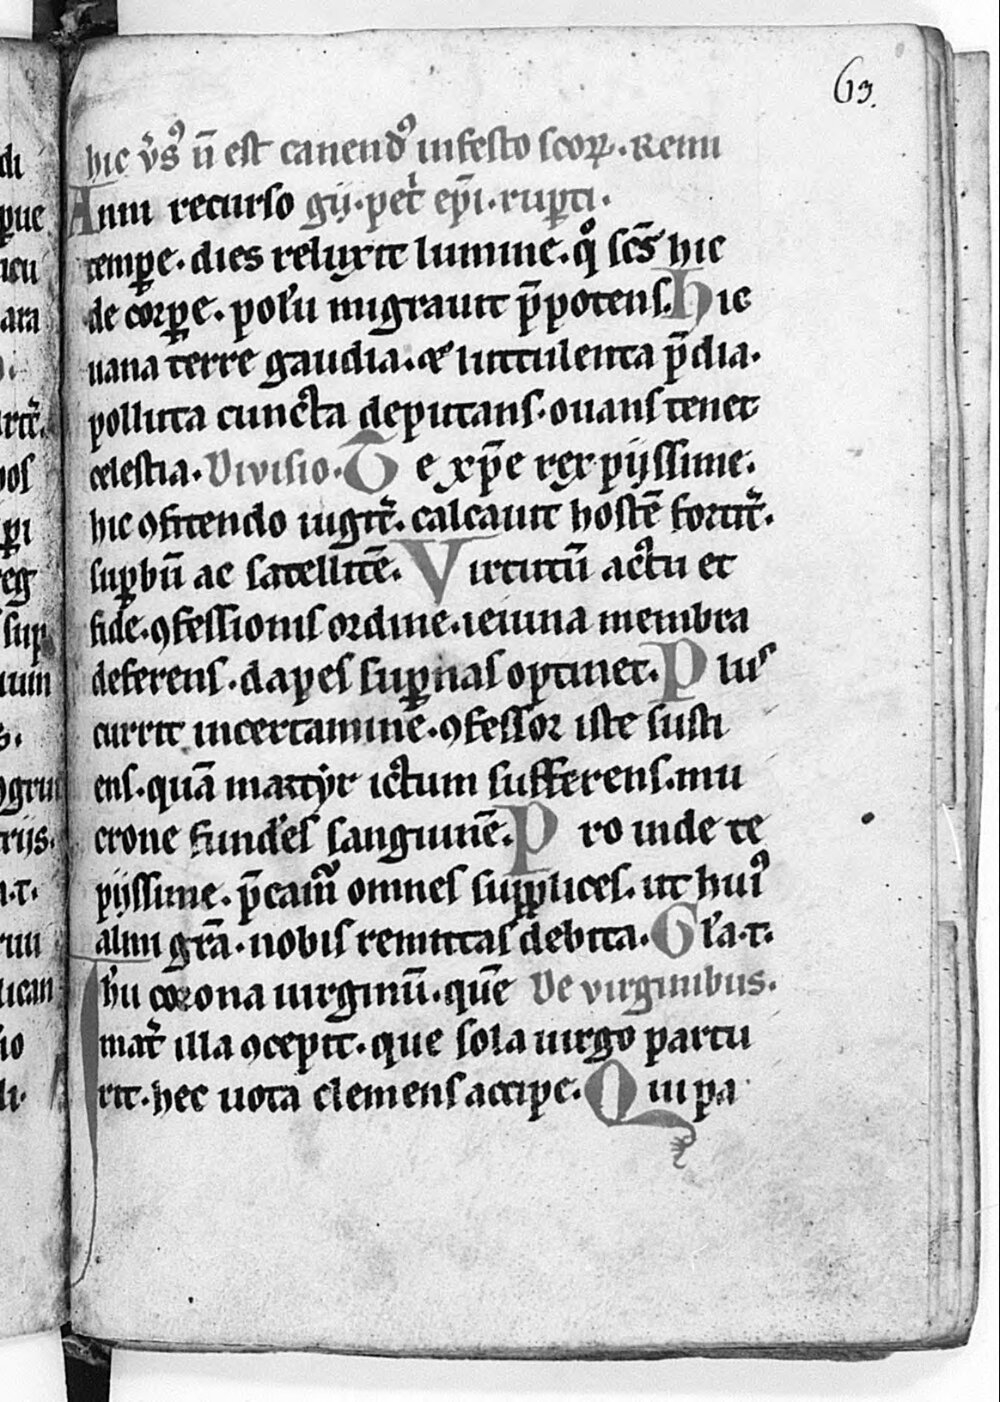 63.
hic v̾sꝰ n̄ est canendꝰ infesto scoꝝ. Remi
Anni recurso gij. pet͛ ep̄i. ruꝑti.
temꝑe. dies reluxit lumine. qͦ sc̄s hic
de corꝑe. polū migrauit p̄potens. Hic
uana terre gaudia. ⁊ luttulenta p̄dia.
polluta cuncta deputans. ouans tenet
celestia. Divisio. Te xp̄e rex pijssime.
hic ꝯfitendo iugit͛. calcauit hostē fortit͛.
suꝑbū ac satellitē. Virtutū actu et
fide. ꝯfessionis ordine. ieiuna membra
deferens. dapes suꝑnas optinet. Plus
currit incertamine. ꝯfessor iste susti
ens. quā martyr ictum sufferens. mu
crone fundēs sanguinē. Pro inde te
pijssime. p̄camur omnes supplices. ut huiꝰ
almi grā. nobis remittas debita. Gl̄a. t.
Ih̄u corona uirginū. quē De virginibus.
mat͛ illa ꝯcepit. que sola uirgo partu
rit. hec uota clemens accipe. Qui pa